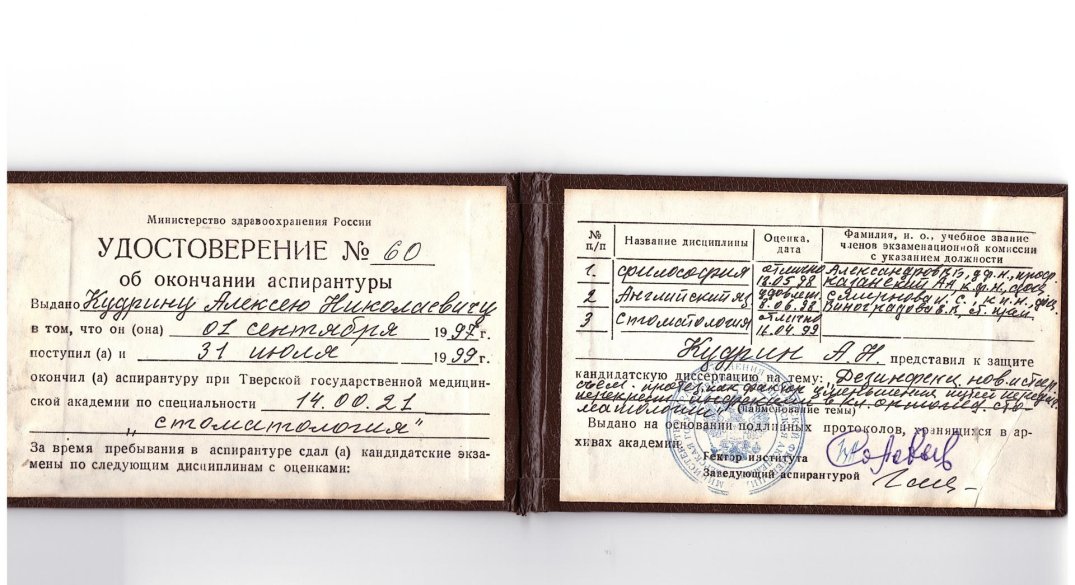 Министерство здравоохранения России
УДОСТОВЕРЕНИЕ № 60
об окончании аспирантуры
Выдано Кудрину Алексею Николаевичу
в том, что он (она) 01 сентября 1997 г.
поступил (а) и 31 июля 1999 г.
окончил (а) аспирантуру при Тверской государственной медицин-
ской академии по специальности 14.00.21
„стоматология"
За время пребывания в аспирантуре сдал (а) кандидатские экза-
мены по следующим дисциплинам с оценками:
№ п/п Название дисциплины Оценка, дата Фамилия, и. о., учебное звание членов экзаменационной комиссии с указанием должности
1. философия отлично 18.05.98 Александров
Казанский АА к.ф.н.
2 Английский яз удовлет. 8.06.98 Смирнова И.С., к.п.н.
Виноградова В.К.
3 Стоматология отлично 16.04.99
Кудрин А.Н представил к защите
кандидатскую диссертацию на тему: „Дезинфекц
как фактор уменьшения путей
перекрестн инфекции сто-
матологии" (наименование темы)
Выдано на основании подлинных протоколов, хранящихся в ар-
хивах академии.
Ректор института
Заведующий аспирантурой